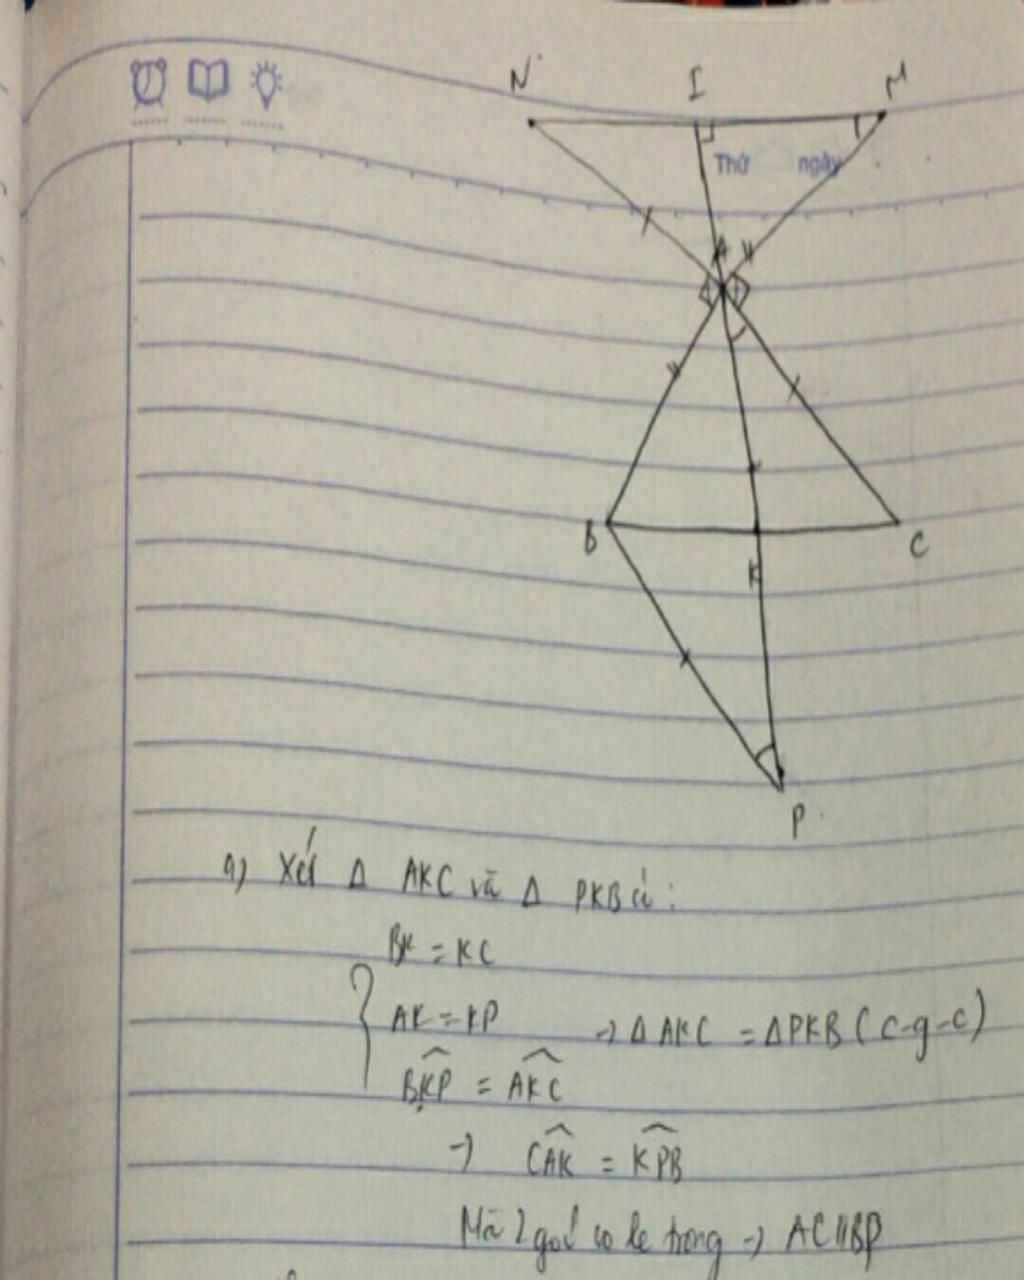 N I M
Thứ ngày
A
B C
K
P
a) Xét Δ AKC và Δ PKB có:
BK = KC
AK = KP → Δ AKC = ΔPKB (c-g-c)
BKP = AKC
→ CAK = KPB
Mà 2 góc so le trong → AC//BP